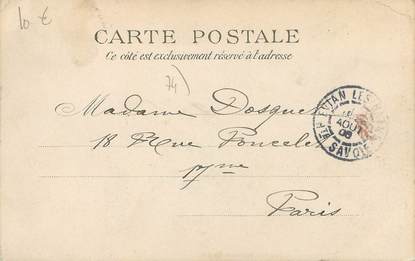 10 €
CARTE POSTALE
Ce côté est exclusivement réservé à l'adresse
74)
Madame Dosquet
18 Rue Poncelet
17me
Paris
EVIAN LES
AOUT
SAVOIE